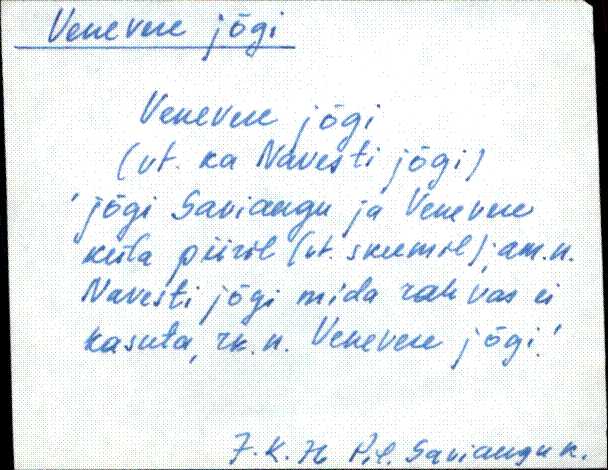 Venevere jõgi
Venevere jõgi
(vt. ka Navesti jõgi)
'jõgi Saviaugu ja Venevere
küla piiril (vt. skeemil); am.n.
Navesti jõgi mida rahvas ei
kasuta, rk.n. Venevere jõgi.'
J.K.H Pil. Saviaugu k.